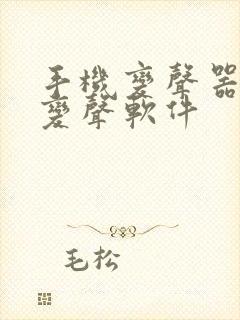 手機變聲器
變聲軟件
毛松